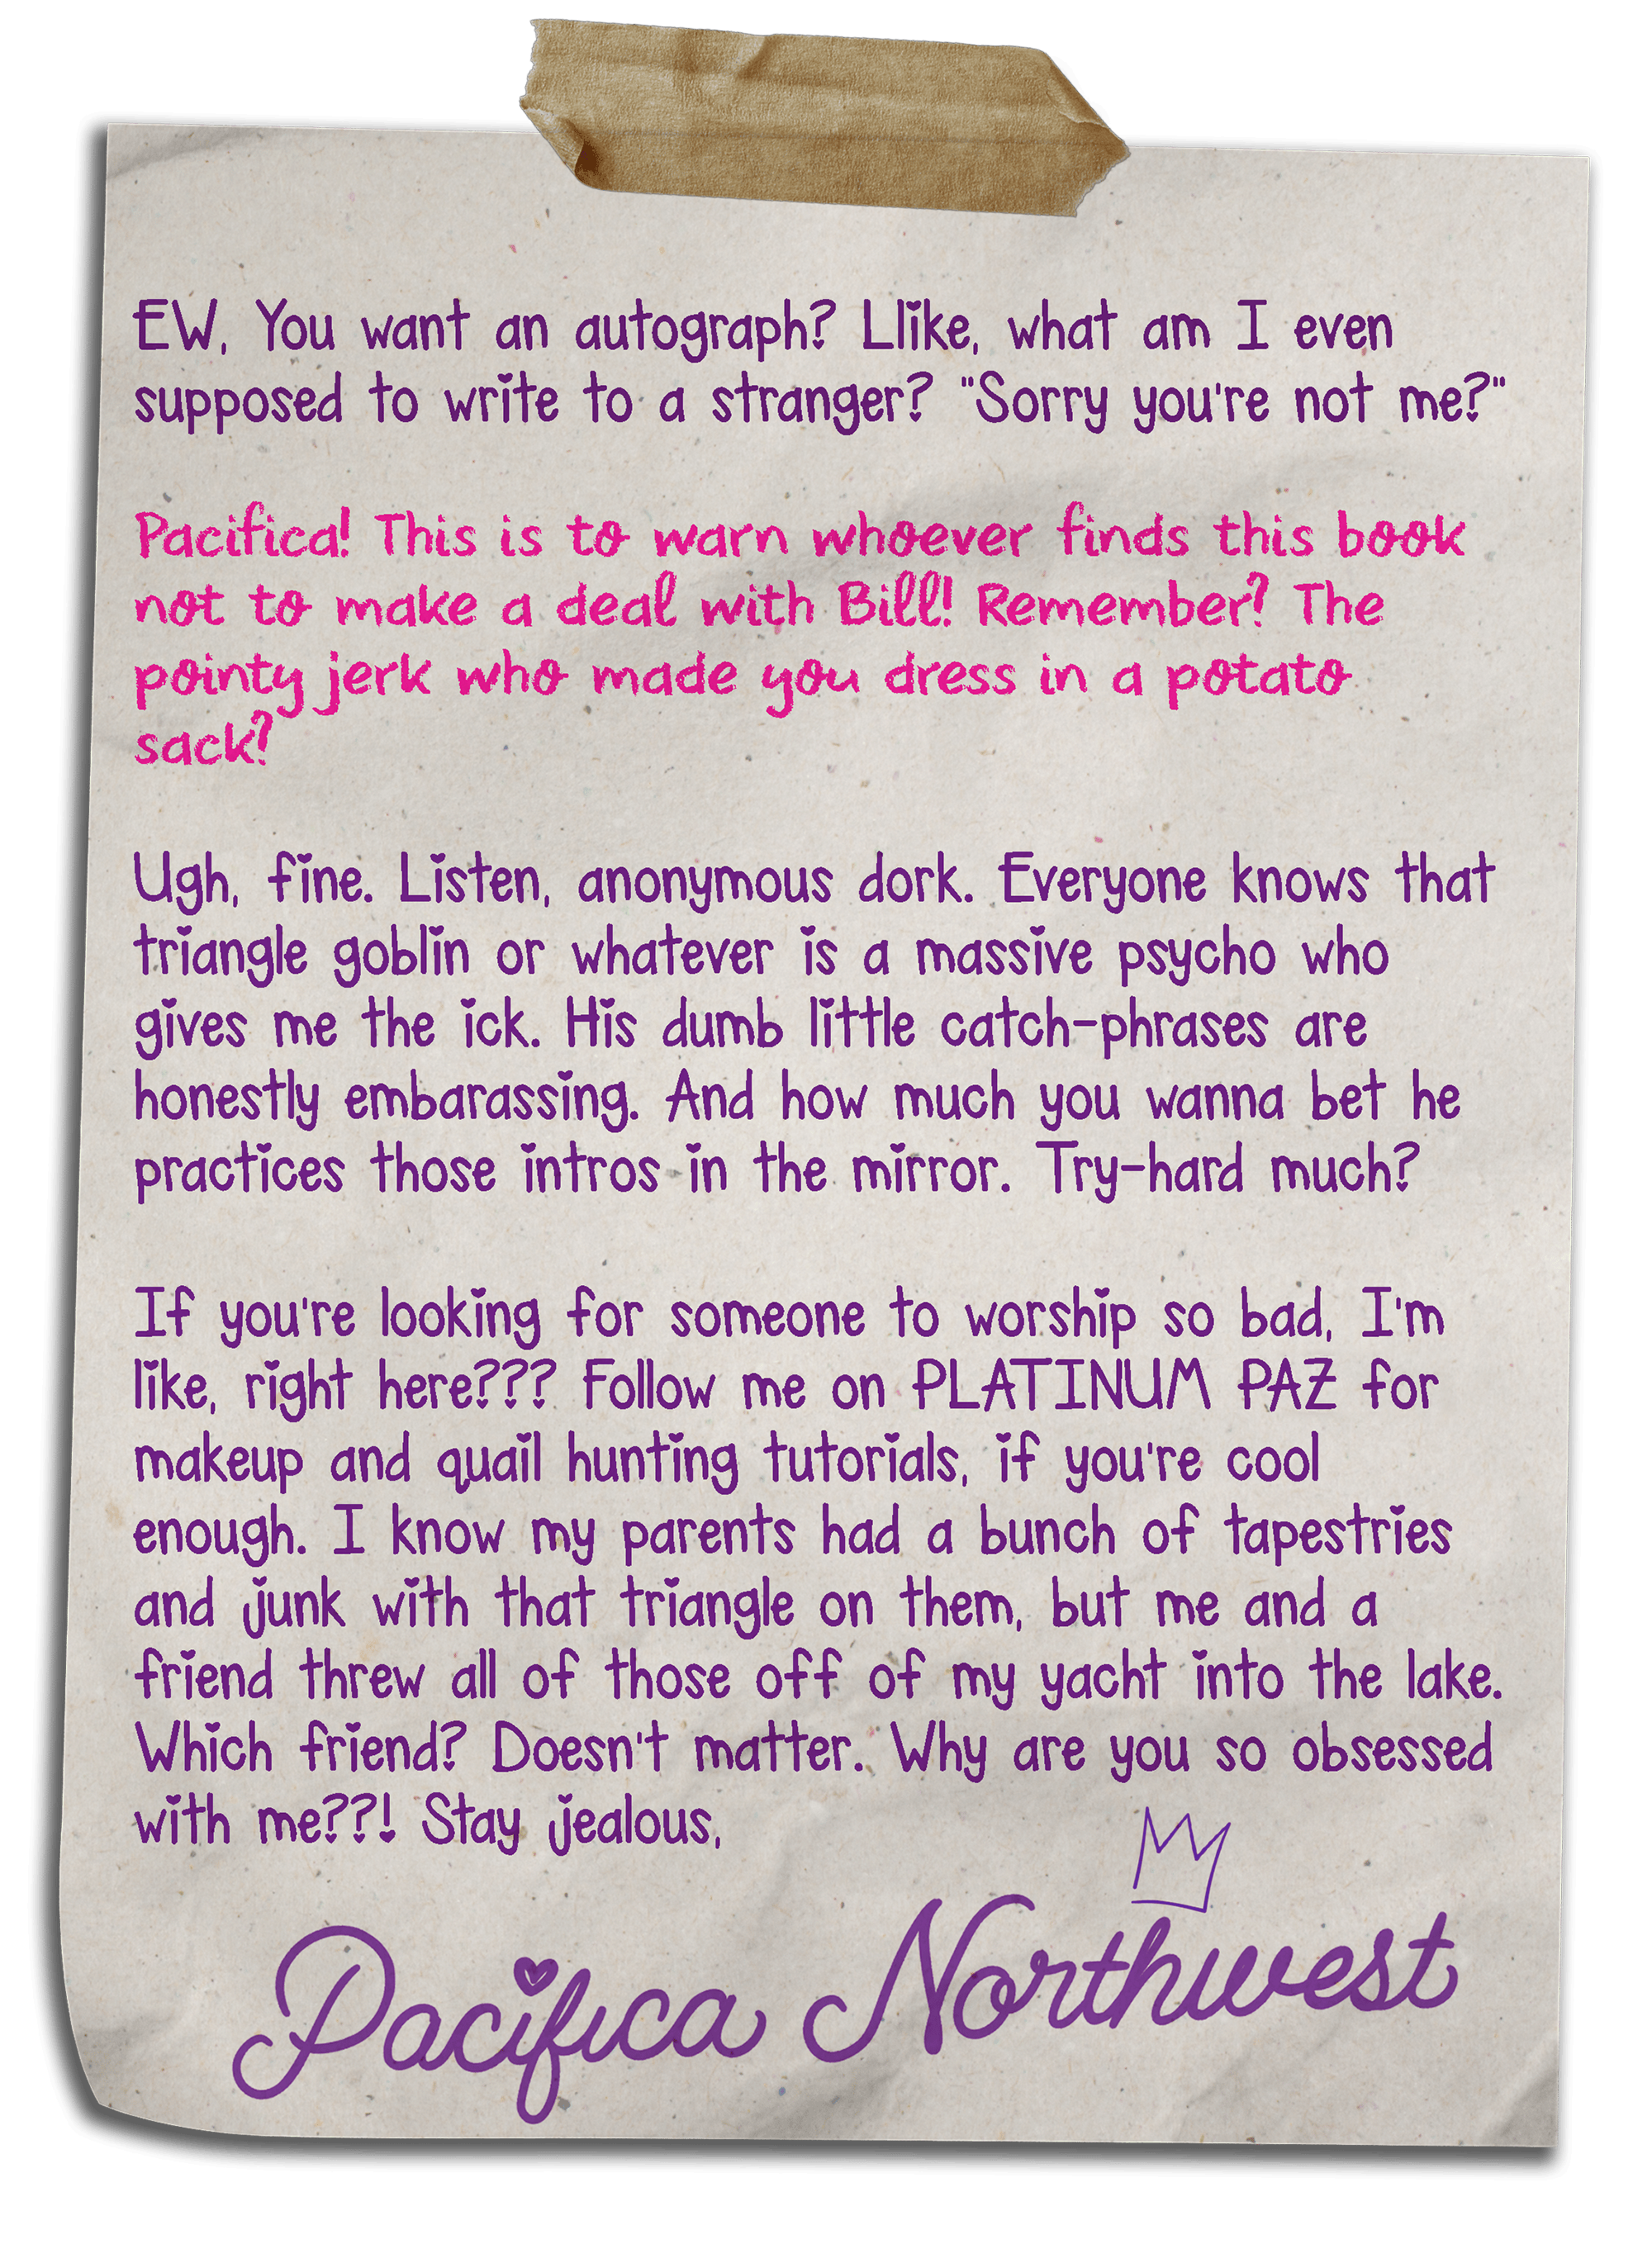 EW, You want an autograph? Llike, what am I even
supposed to write to a stranger? "Sorry you're not me?"
Pacifica! This is to warn whoever finds this book
not to make a deal with Bill! Remember? The
pointy jerk who made you dress in a potato
sack?
Ugh, fine. Listen, anonymous dork. Everyone knows that
triangle goblin or whatever is a massive psycho who
gives me the ick. His dumb little catch-phrases are
honestly embarassing. And how much you wanna bet he
practices those intros in the mirror. Try-hard much?
If you're looking for someone to worship so bad, I'm
like, right here??? Follow me on PLATINUM PAZ for
makeup and quail hunting tutorials, if you're cool
enough. I know my parents had a bunch of tapestries
and junk with that triangle on them, but me and a
friend threw all of those off of my yacht into the lake.
Which friend? Doesn't matter. Why are you so obsessed
with me??! Stay jealous,
Pacifica Northwest